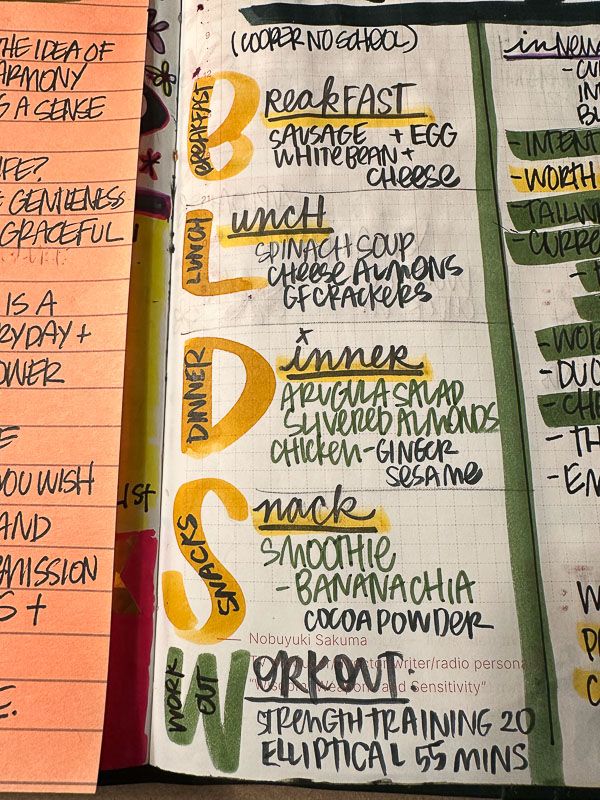 THE IDEA OF
ARMONY
S A SENSE
IFE?
E GENTLENESS
GRACEFUL
IS A
RYDAY +
OWER
YOU WISH
AND
MISSION
S +
E.
LIST
(COOPER NO SCHOOL)
BREAKFAST
BREAKFAST
SAUSAGE + EGG
WHITE BEAN +
CHEESE
LUNCH
LUNCH
SPINACH SOUP
CHEESE ALMONS
GF CRACKERS
DINNER
DINNER
ARUGULA SALAD
SLIVERED ALMONDS
CHICKEN - GINGER
SESAME
SNACKS
SNACK
SMOOTHIE
- BANANA CHIA
COCOA POWDER
Nobuyuki Sakuma
writer/radio persona
Weapons and Sensitivity"
WORK OUT
WORKOUT:
STRENGTH TRAINING 20
ELLIPTICAL 55 MINS
- INTENT
- WORTH
- TAILWI
- CURRE
- WOR
- DUC
- CHE
- TH
- EN